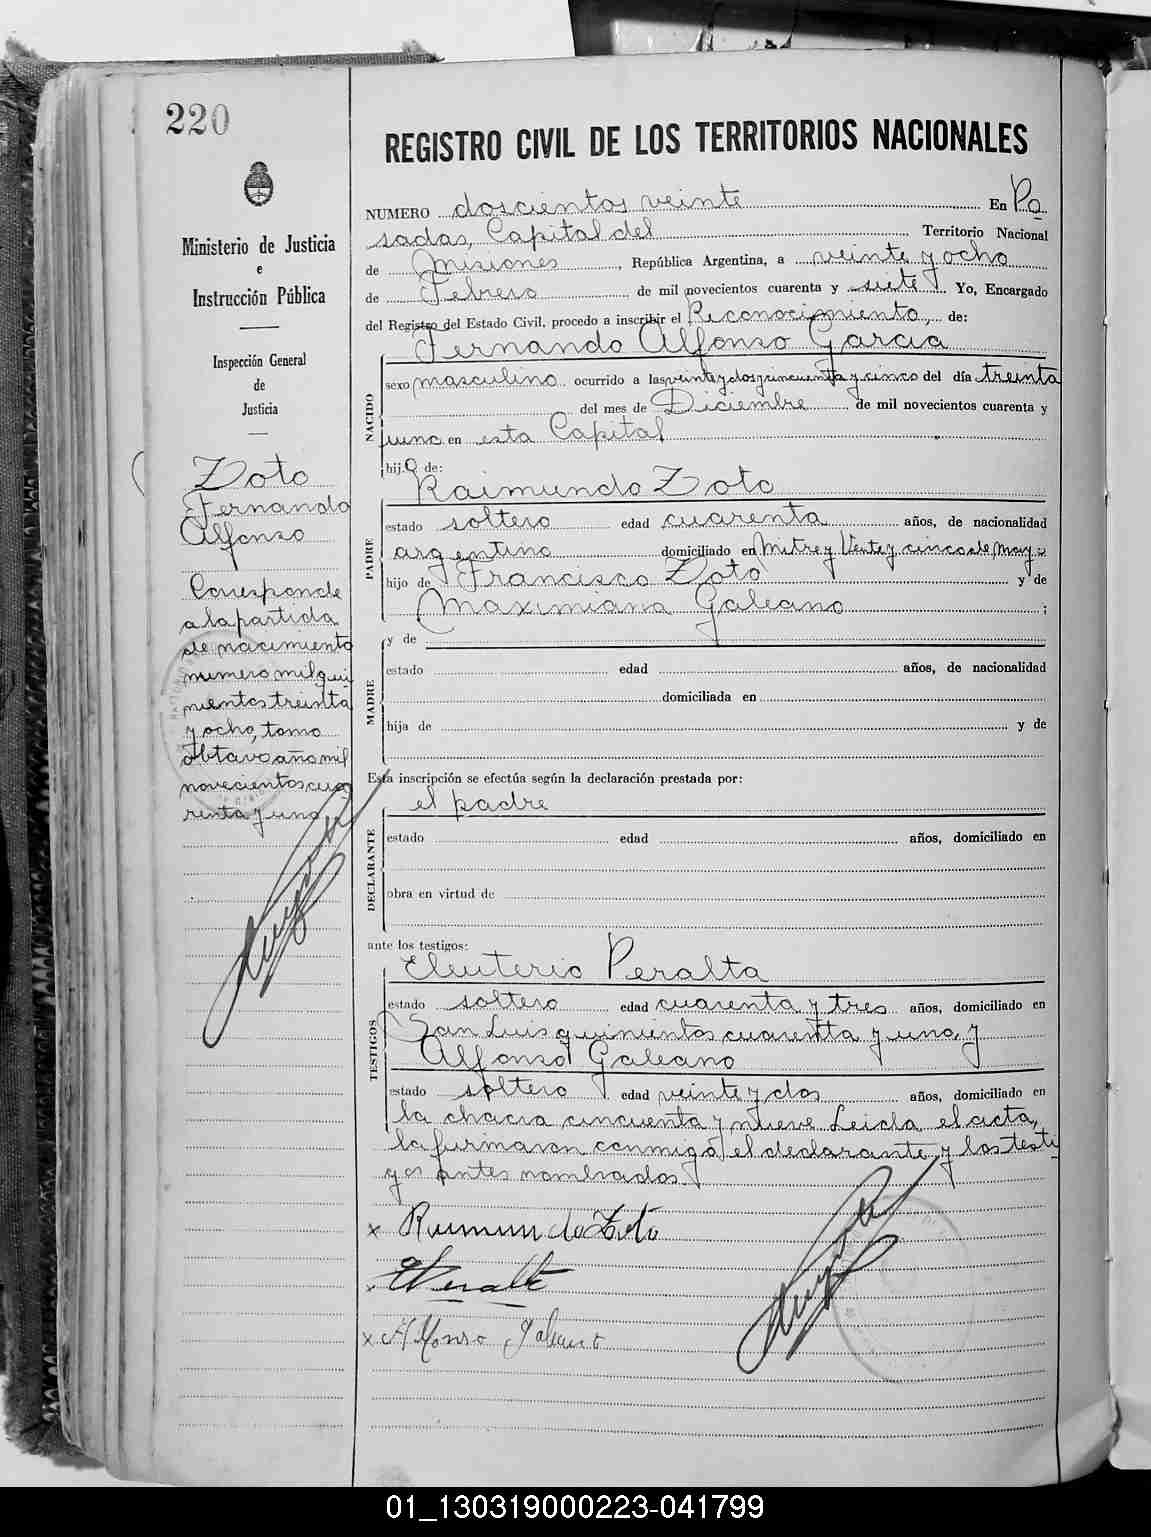 220
Ministerio de Justicia
e
Instrucción Pública
Inspección General
de
Justicia
Zoto
Fernando
Alfonso
Corresponde
a la partida
de nacimiento
numero mil qui
nientos treinta
y ocho, tomo
obtavo año mil
novecientos cua
renta y uno
REGISTRO CIVIL DE LOS TERRITORIOS NACIONALES
NUMERO doscientos veinte En Po
sadas, Capital del Territorio Nacional
de Misiones, República Argentina, a veinte y ocho
de Febrero de mil novecientos cuarenta y siete Yo, Encargado
del Registro del Estado Civil, procedo a inscribir el Reconocimiento, de:
Fernando Alfonso Garcia
NACIDO
sexo masculino ocurrido a las veinte y dos y cincuenta y cinco del día treinta
del mes de Diciembre de mil novecientos cuarenta y
uno en esta Capital
hijo de:
Raimundo Zoto
PADRE
estado soltero edad cuarenta años, de nacionalidad
argentino domiciliado en Mitre y Veinte y cinco de Mayo
hijo de Francisco Zoto y de
Maximiana Galeano ;
y de
MADRE
estado edad años, de nacionalidad
domiciliada en
hija de y de
Esta inscripción se efectúa según la declaración prestada por:
el padre
DECLARANTE
estado edad años, domiciliado en
obra en virtud de
ante los testigos:
Eleuterio Peralta
TESTIGOS
estado soltero edad cuarenta y tres años, domiciliado en
San Luis quinientos cuarenta y uno, y
Alfonso Galeano
estado soltero edad veinte y dos años, domiciliado en
la chacra cincuenta y nueve Leida el acta,
la firmaron conmigo el declarante y los testi
gos antes nombrados.
x Raimundo Zoto
x EPeralta
x Alfonso Galeano
01_130319000223-041799